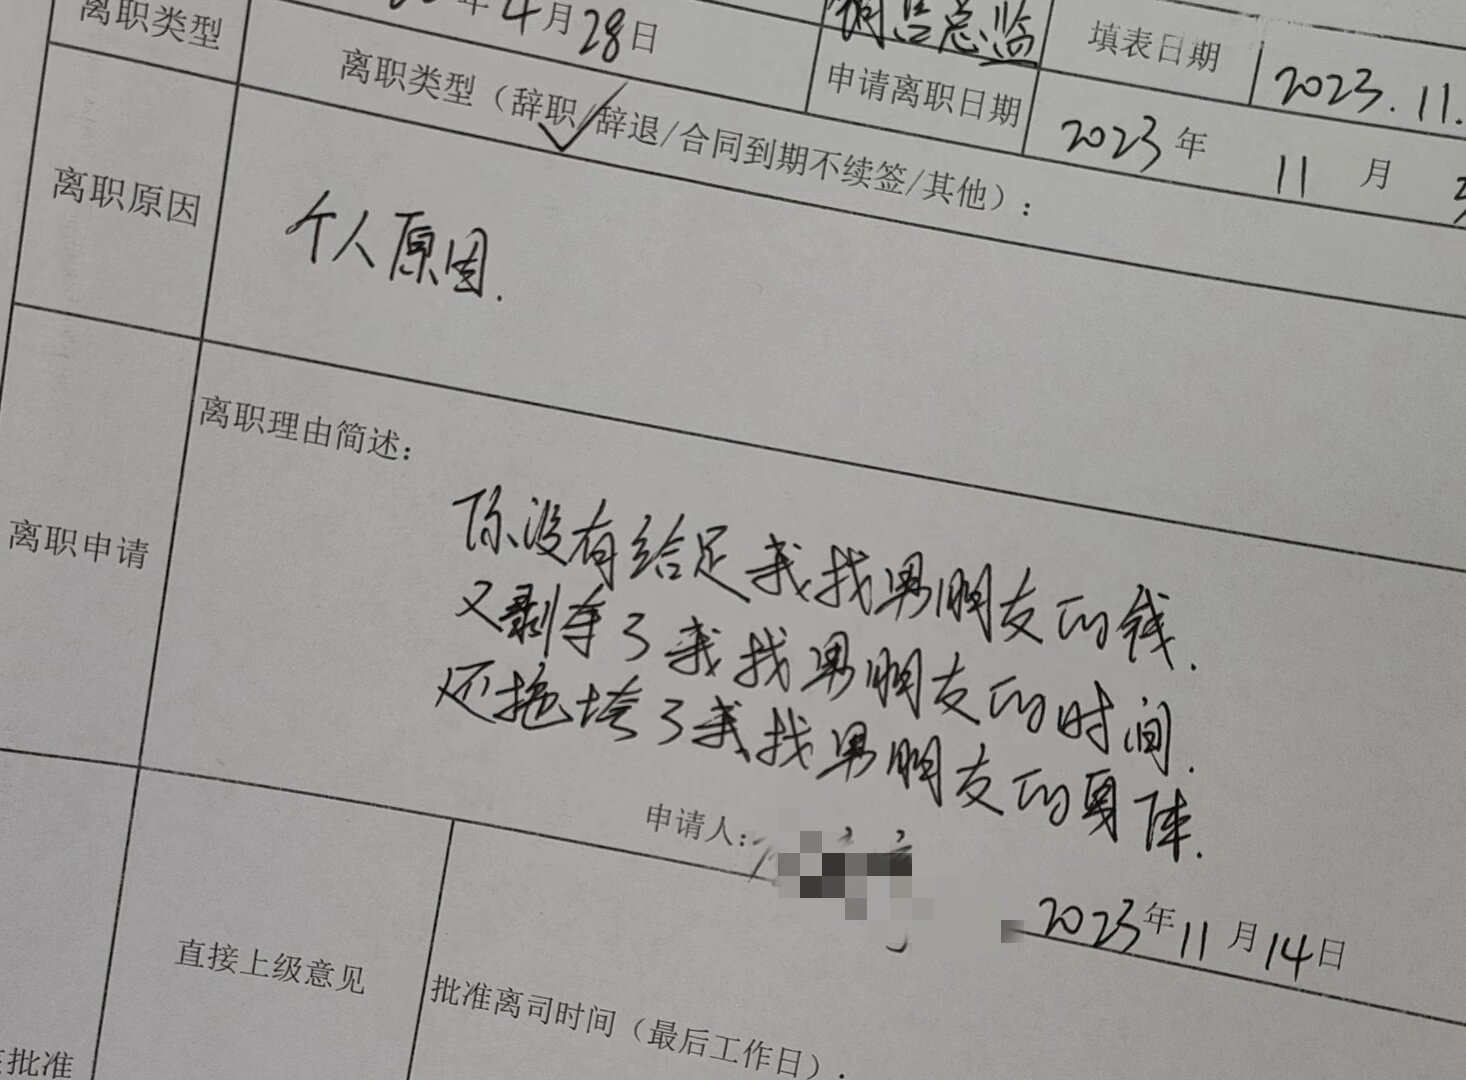 离职类型
年4月28日
销售总监
填表日期
2023.11.
离职类型（辞职/辞退/合同到期不续签/其他）：
申请离职日期
2023年11月
离职原因
个人原因.
离职理由简述：
离职申请
你没有给足我找男朋友的钱.
又剥夺了我找男朋友的时间.
还拖垮了我找男朋友的身体.
申请人：
2023年11月14日
直接上级意见
批准离司时间（最后工作日）.
批准